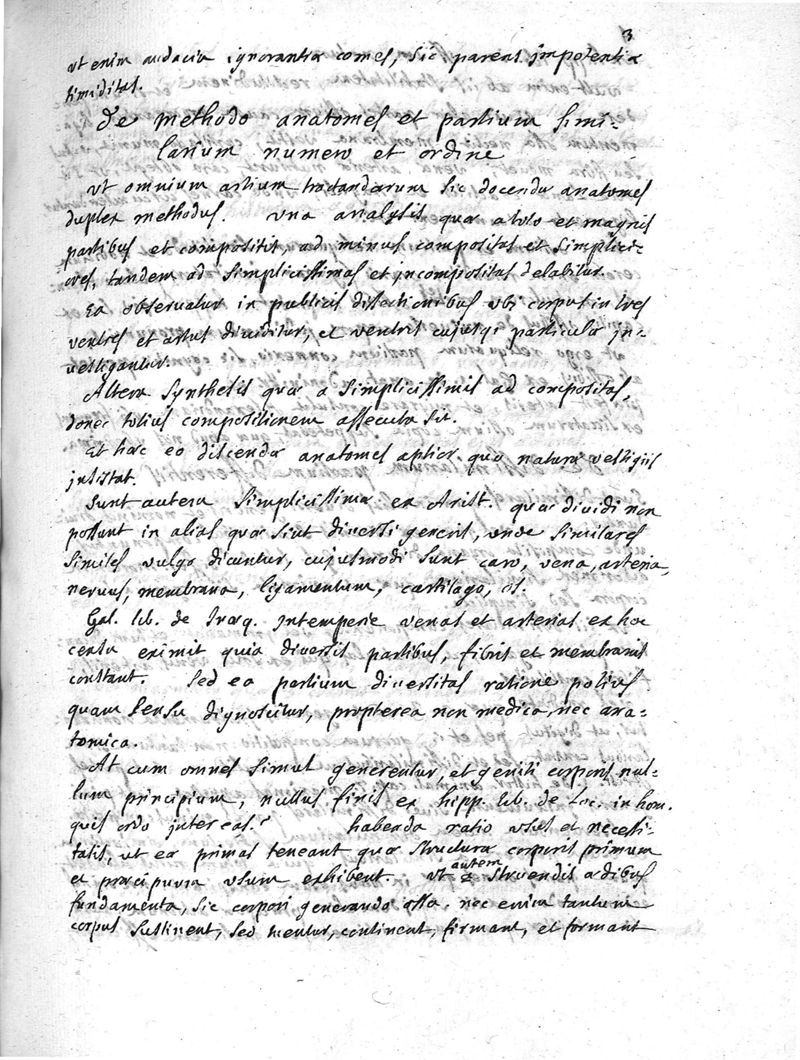 3
ut enim audacia ignorantiæ comes, sic parens impotentiæ
timiditas.
De methodo anatomes et partium simi-
larium numero et ordine
Ut omnium artium tractandarum sic docendæ anatomes
duplex methodus. una analysis quæ a toto et magnis
partibus et compositis, ad minus compositas et simplici-
ores, tandem ad simplicissimas et incompositas delabitur.
Ea observatur in publicis dissectionibus ubi corpus in tres
ventres et artus dividitur, et ventris cujusqu particulæ in-
vestigantur.
Altera synthesis quæ a simplicissimis ad compositas,
donec totius compositionem assecuta sit.
Et hæc eo discendæ anatomes aptior quo naturæ vestigiis
insistat.
Sunt autem simplicissimæ ex Arist. quæ dividi non
possunt in alias quæ sint diversi generis, unde similares
similes vulgo dicuntur, cujusmodi sunt caro, vena, arteria,
nervus, membrana, ligamentum, cartilago, os.
Gal. lib. de Inæq. intemperie venas et arterias ex hoc
censu eximit quia diversis partibus, fibris et membranis
constant. Sed ea partium diversitas ratione potius
quam sensu dignoscitur, propterea non medica, nec ana-
tomica.
At cum omnes simul generentur, et geniti corporis nul-
lum principium, nullus finis ex hipp. lib. de Loc. in hom.
quis ordo inter eas? habenda ratio usus et necessi-
tatis, ut eæ primas teneant quæ structuræ corporis primum
et præcipuum usum exhibent. ut autem struendis ædibus
fundamenta, sic corpori generando ossa. nec enim tantum
corpus sustinent, sed tuentur, continent, firmant, et formant